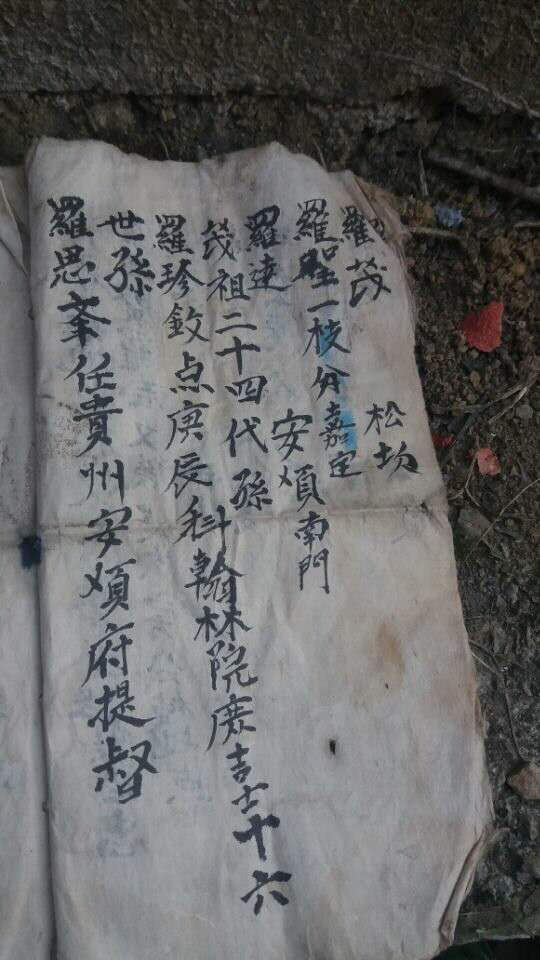 羅茂 松
羅聖一枝分嘉定
羅達 安順南門
茂祖二十四代孫
羅珍点庚辰科翰林院庶吉士十六
世孫
羅思任貴州安順府提督